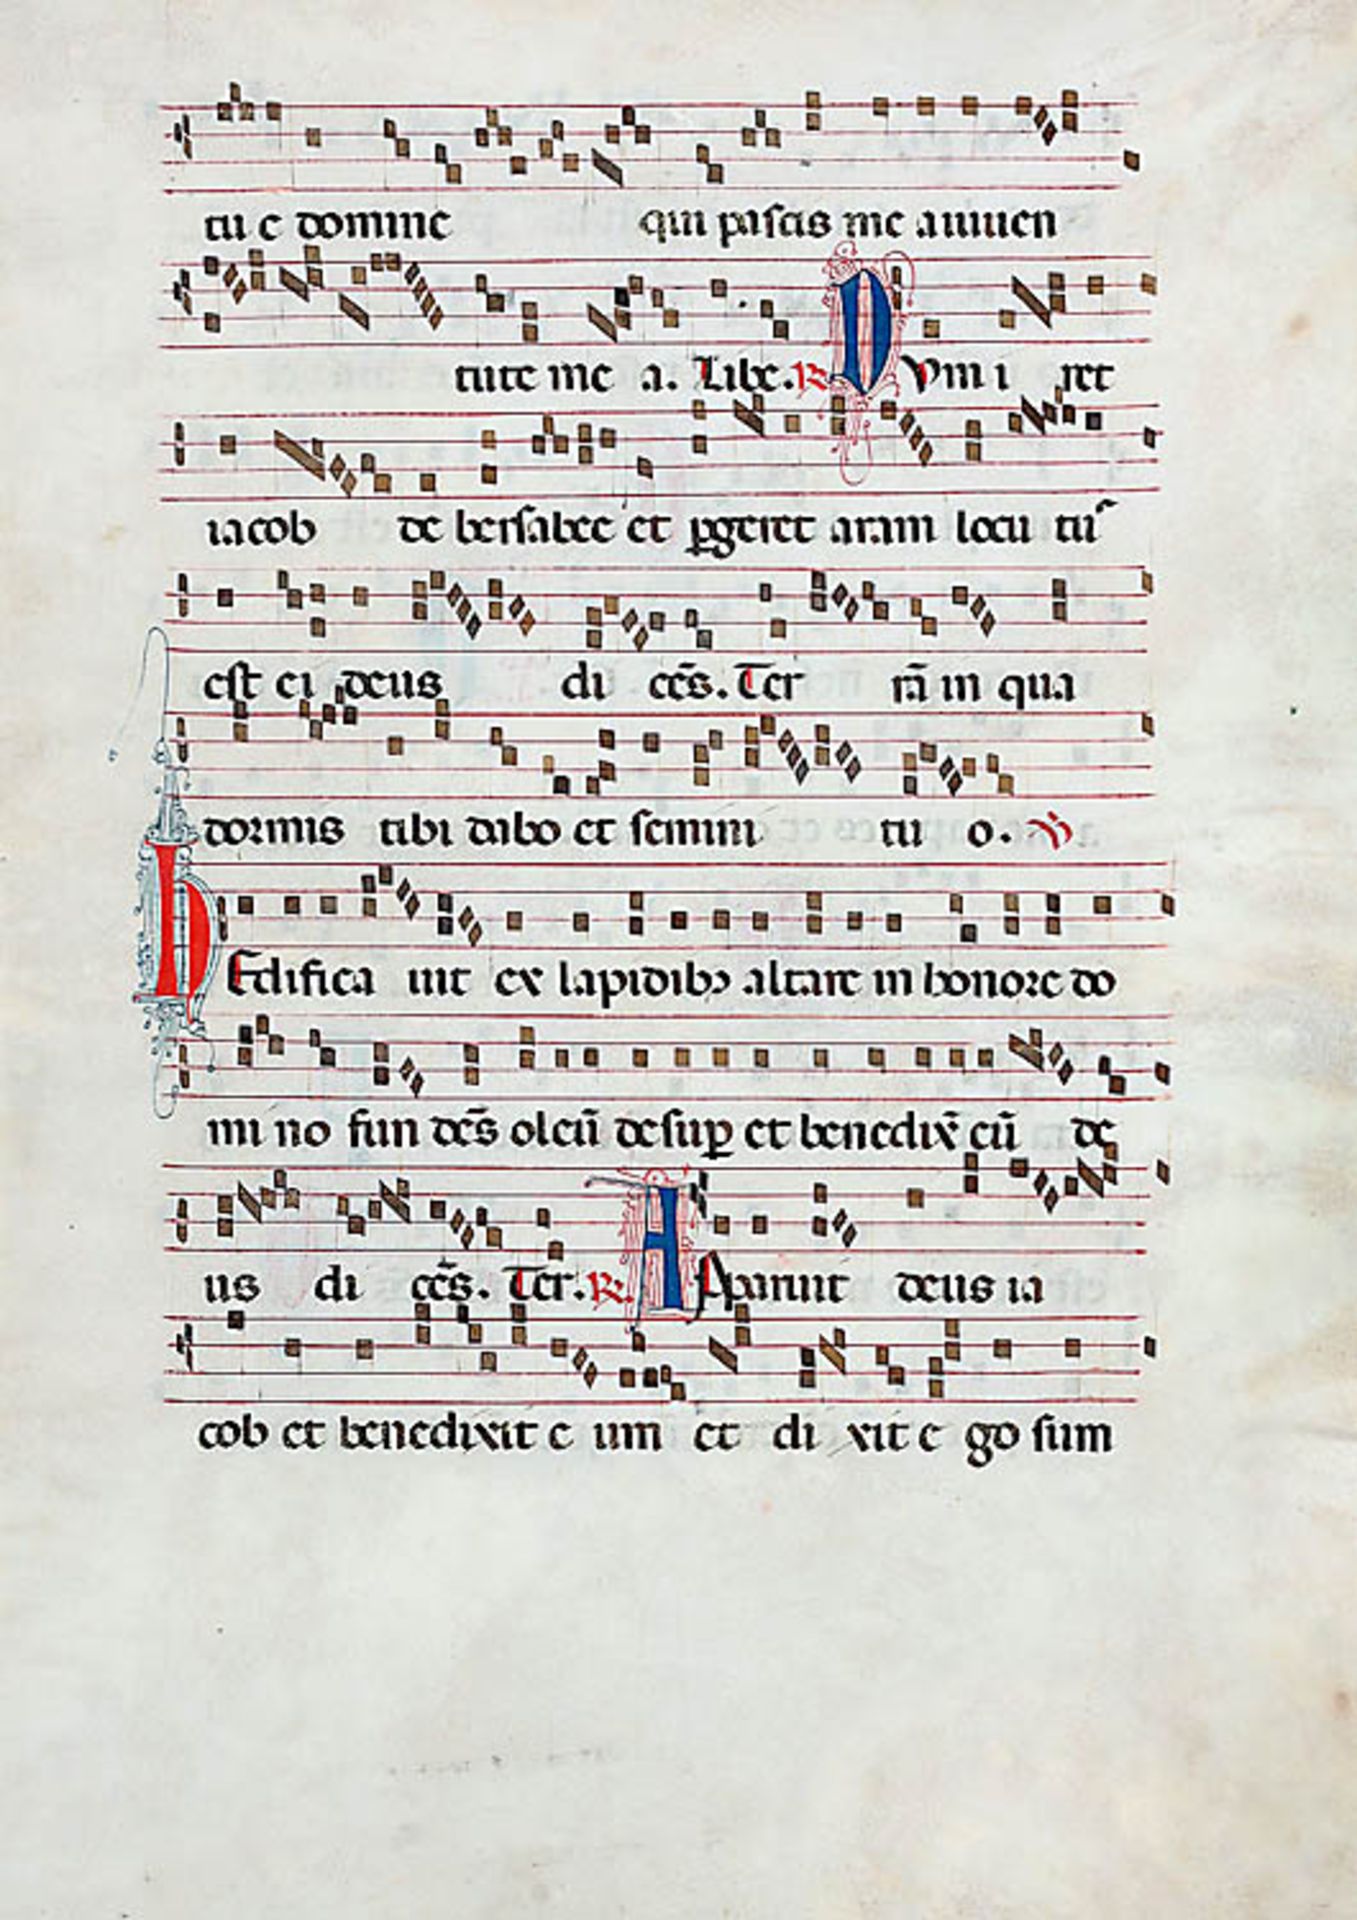 tu e domine qui pascis me a iuuen
tute me a. Libe. R DVm i ret
iacob de bersabee et pgeret aram locutꝰ
est ei deus di cēs. Ter rā in qua
dormis tibi dabo et semini tu o. ℣
Edifica uit ex lapidibꝰ altare in honore do
mi no fun dēs oleū desup et benedix̄ eū de
us di cēs. Ter. R. APparuit deus ia
cob et benedixit e um et di xit e go sum